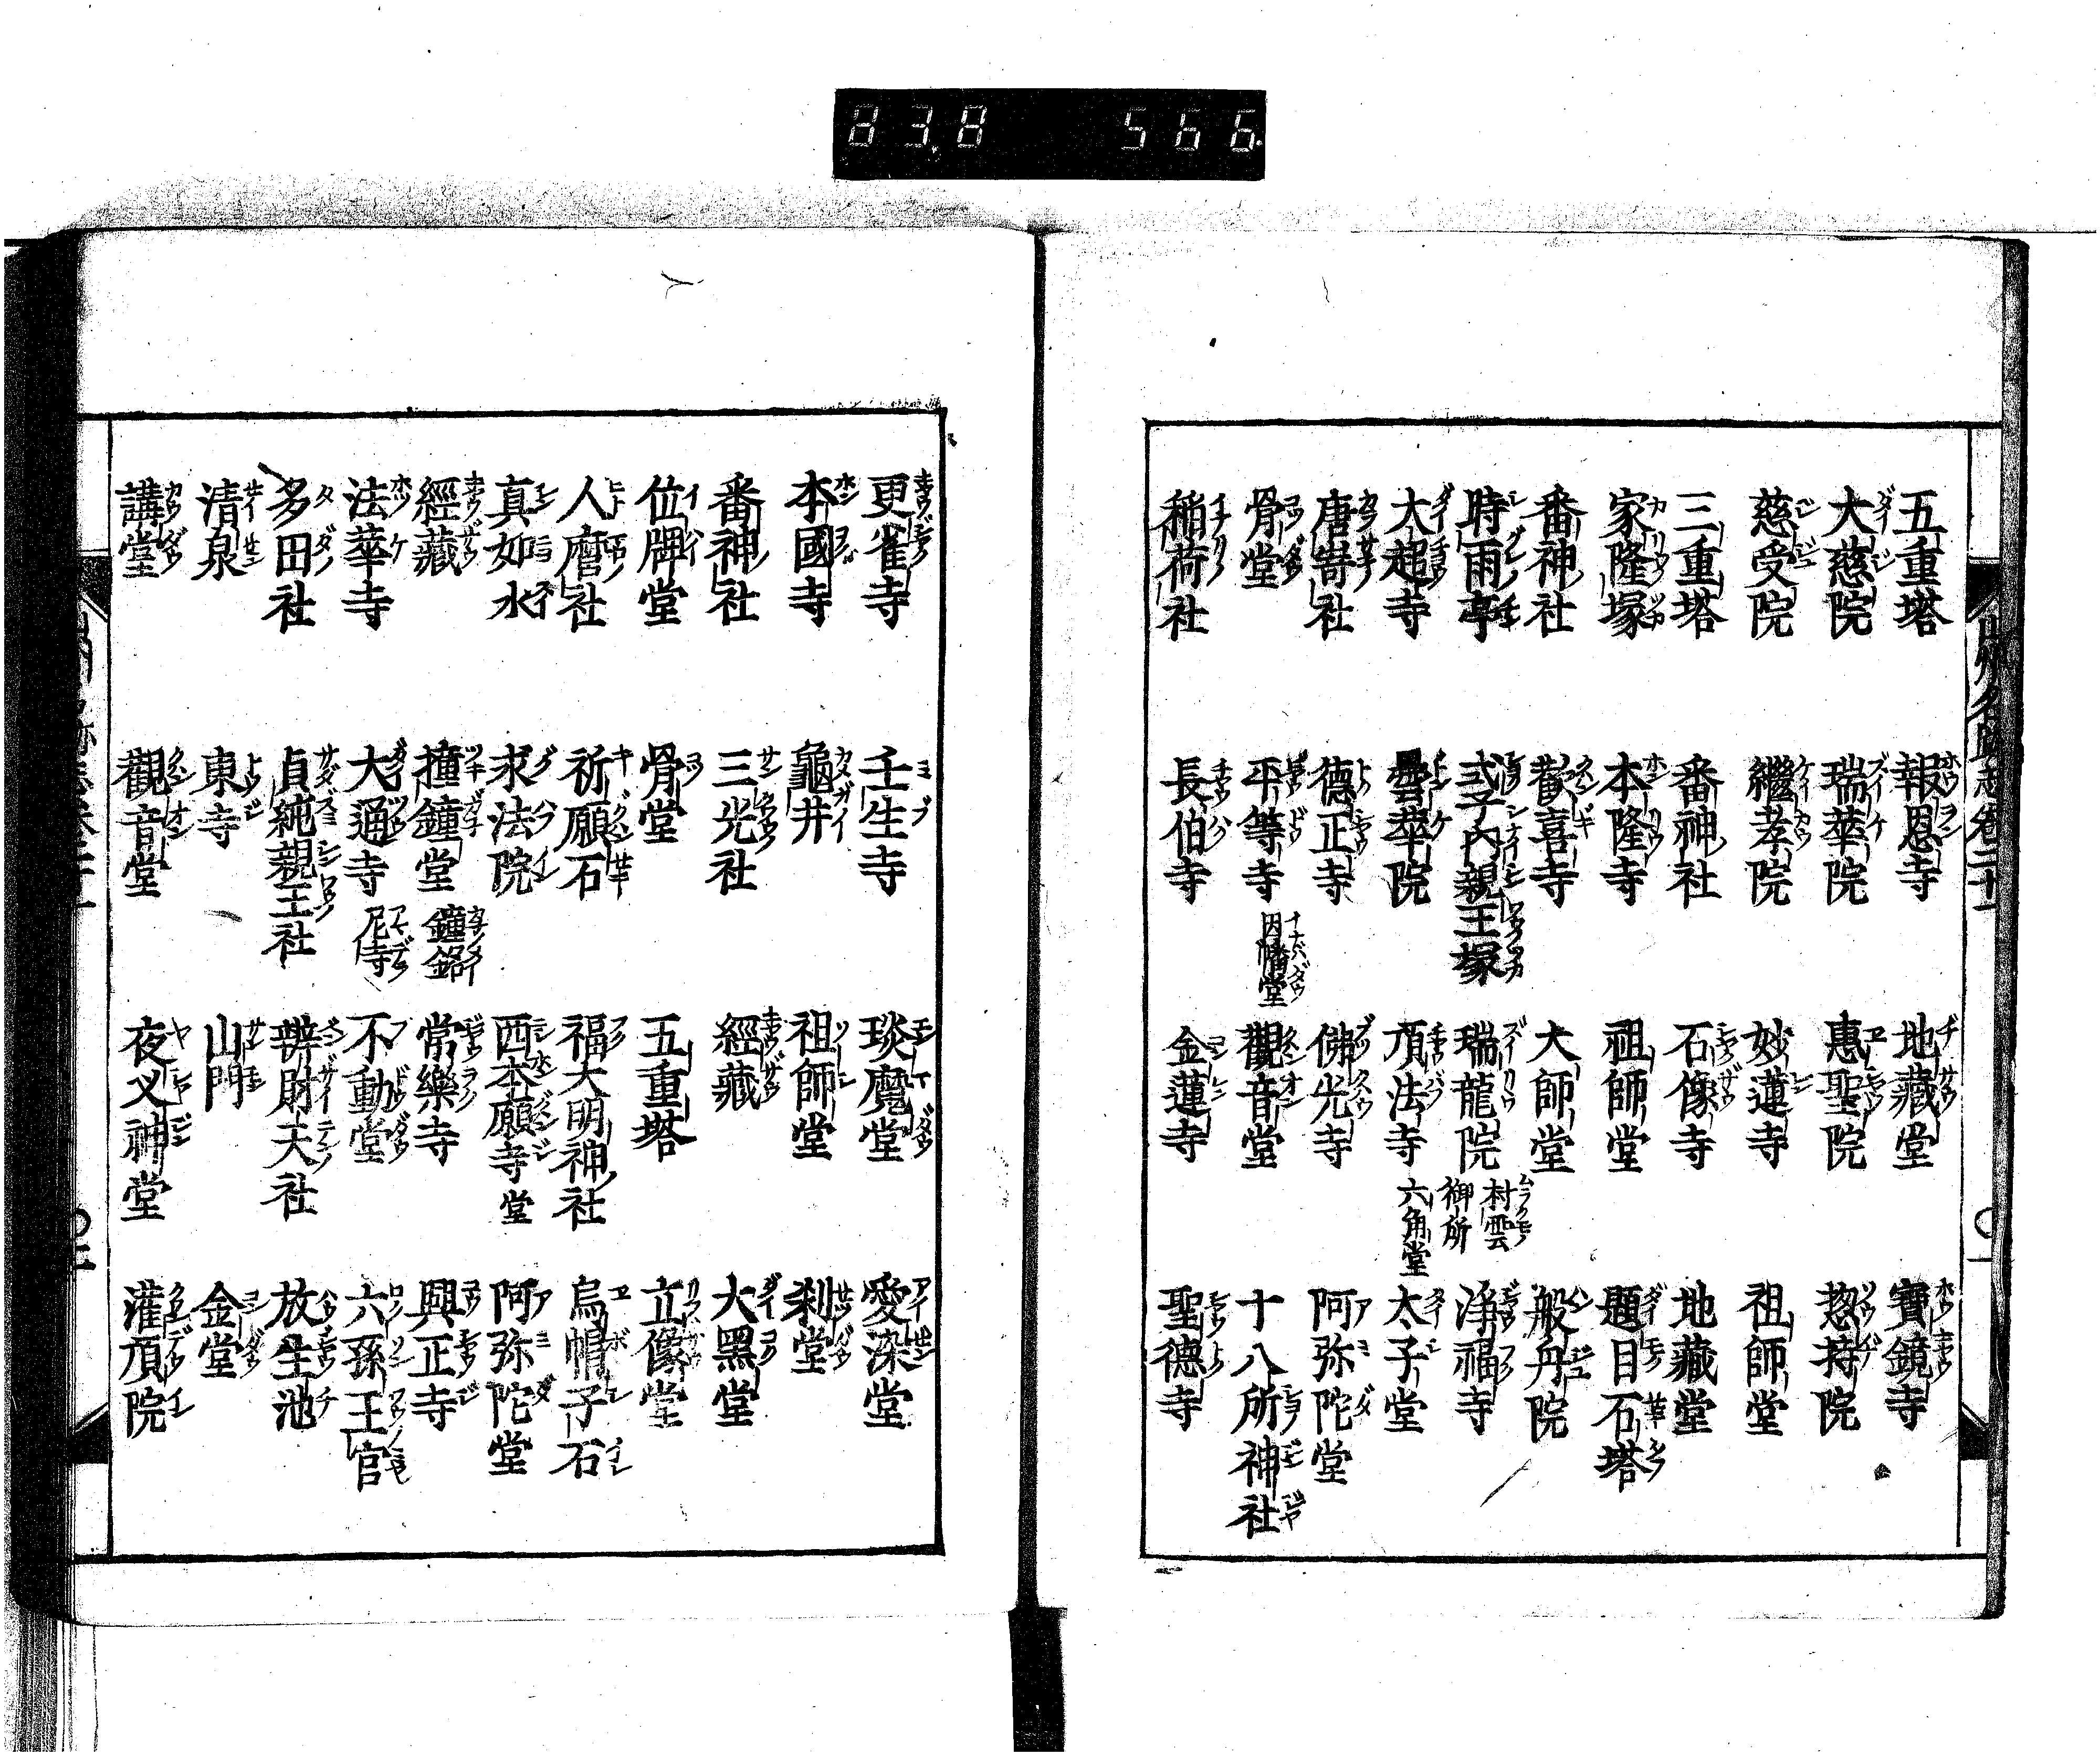 83.8 566.
五重塔 報恩寺 地藏堂 寶鏡寺
大慈院 瑞華院 惠聖院 惣持院
慈受院 繼孝院 妙蓮寺 祖師堂
三重塔 番神社 石像寺 地藏堂
家隆塚 本隆寺 祖師堂 題目石塔
番神社 歡喜寺 大師堂 般舟院
時雨亭 式子内親王塚 瑞龍院 村雲御所 浄福寺
大超寺 雲華院 頂法寺 六角堂 太子堂
唐崎社 德正寺 佛光寺 阿弥陀堂
骨堂 平等寺 因幡堂 觀音堂 十八所神社
稲荷社 長伯寺 金蓮寺 聖德寺
更雀寺 壬生寺 琰魔堂 愛染堂
本國寺 龜井 祖師堂 刹堂
番神社 三光社 經藏 大黑堂
位牌堂 骨堂 五重塔 立像堂
人麿社 祈願石 福大明神社 烏帽子石
真如水 求法院 西本願寺堂 阿弥陀堂
經藏 撞鐘堂 鐘銘 常樂寺 興正寺
法華寺 大通寺 尼寺 不動堂 六孫王宮
多田社 貞純親王社 辨財天社 放生池
清泉 東寺 山門 金堂
講堂 觀音堂 夜叉神堂 灌頂院